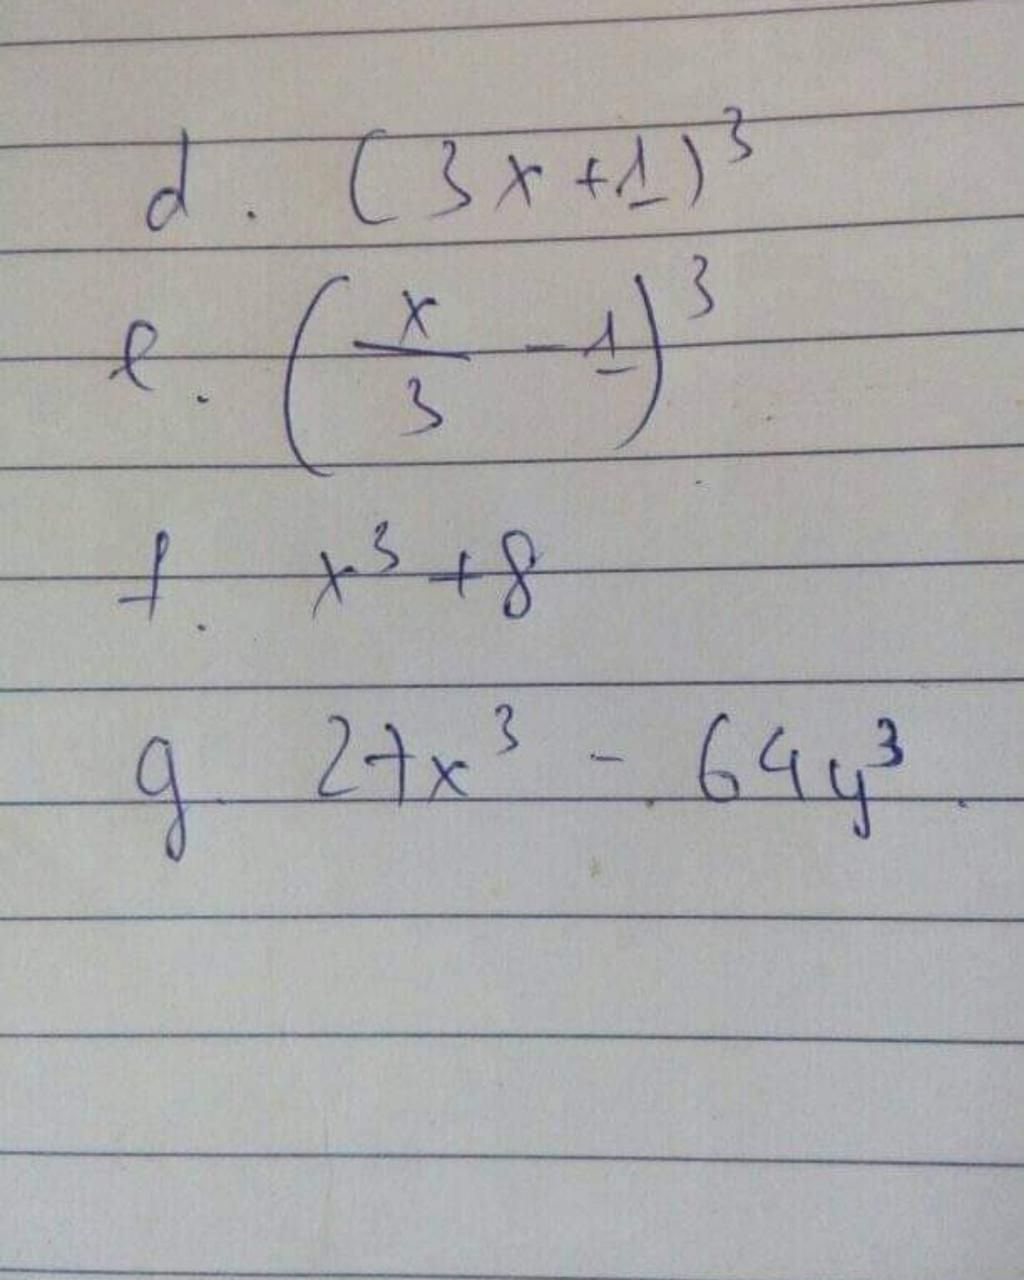 d. (3x+1)³
e. (x/3 - 1)³
f. x³+8
g. 27x³ - 64y³.